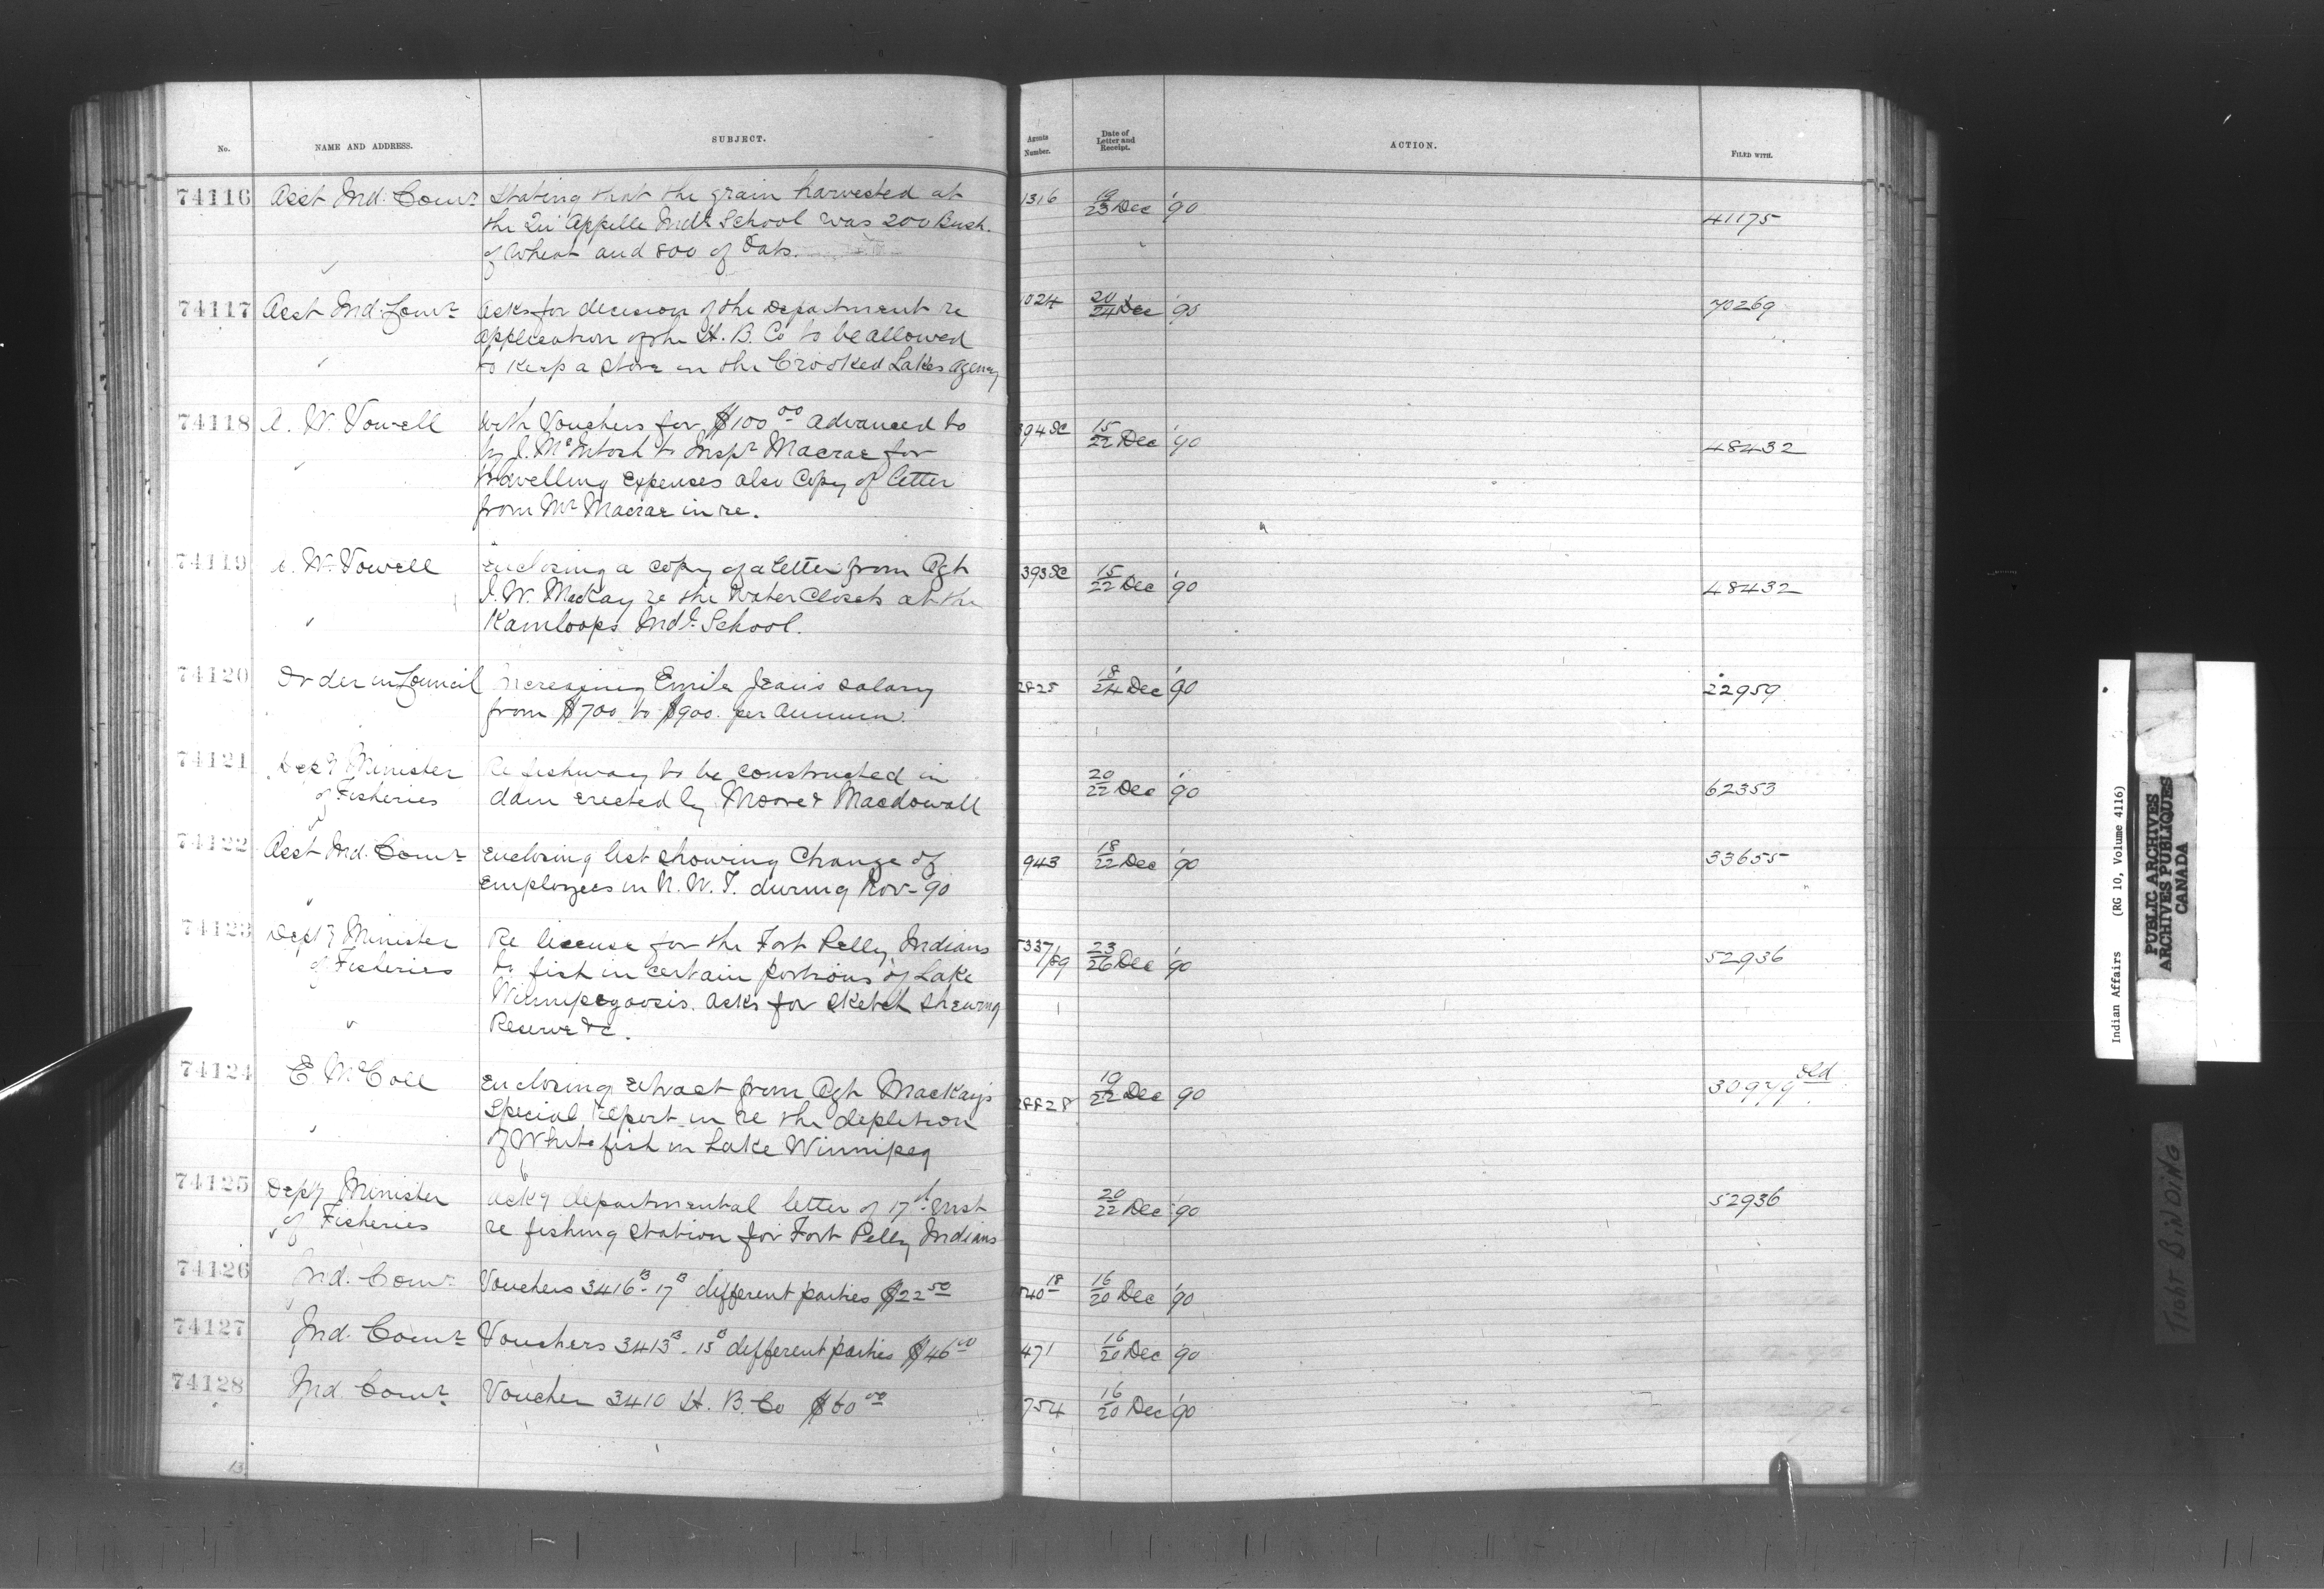 No. NAME AND ADDRESS. SUBJECT. Agents Number. Date of Letter and Receipt. ACTION. FILED WITH.
74116 Asst Ind. Comr Stating that the grain harvested at 1316 19/23 Dec '90 41175
the Qu'Appelle Indl School was 200 Bush.
of Wheat and 800 of Oats.
74117 Asst Ind. Comr Asks for decision of the Department re 1024 20/24 Dec '90 70269
application of the H. B. Co to be allowed
to keep a store on the Crooked Lakes Agency
74118 A. W. Vowell With Vouchers for $100 00 advanced to 394 SC 15/22 Dec '90 48432
by J. McIntosh to Inspr Macrae for
travelling expenses also Copy of letter
from Mr Macrae in re.
74119 A. W. Vowell Enclosing a copy of a letter from Agt 393 SC 15/22 Dec '90 48432
J. W. MacKay re the Water Closets at the
Kamloops Indl. School.
74120 Order in Council Increasing Emile Jean's salary 2825 18/24 Dec '90 22959
from $700. to $900. per annum.
74121 Depy Minister Re fishway to be constructed in 20/22 Dec '90 62353
of Fisheries dam erected by Moore & Macdowall
74122 Asst Ind. Comr Enclosing list showing Change of 943 18/22 Dec '90 33655
employees in N. W. T. during Nov- 90
74123 Depty Minister Re license for the Fort Pelly Indians 5337/89 23/26 Dec '90 52936
of Fisheries to fish in certain portions of Lake
Winnipegoosis. asks for sketch shewing
Reserve &c.
74124 E. McColl Enclosing extract from Agt MacKay's 2828 19/22 Dec 90 30979 old
Special report in re the depletion
of White fish in Lake Winnipeg
74125 Depty Minister Acky departmental letter of 17th inst 20/22 Dec '90 52936
of Fisheries re fishing station for Fort Pelly Indians
74126 Ind. Comr Vouchers 3416B - 17B different parties $22 50 540 18 16/20 Dec '90
74127 Ind. Comr Vouchers 3413B - 15B different parties $46 00 471 16/20 Dec '90
74128 Ind. Comr Voucher 3410 H. B. Co $60 00 754 16/20 Dec '90
13
Indian Affairs (RG 10, Volume 4116)
PUBLIC ARCHIVES
ARCHIVES PUBLIQUES
CANADA
TIGHT BINDING